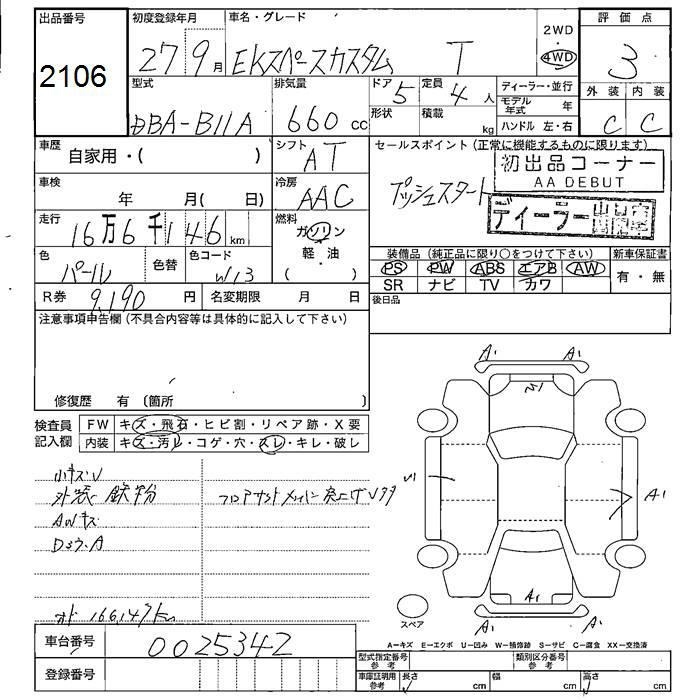 出品番号
2106
初度登録年月
27 9 月
車名・グレード
EKスペースカスタム T
2WD
4WD
評価点
3
外装 内装
C C
型式
DBA-B11A
排気量
660 cc
ドア 5
形状
定員 4 人
積載 kg
ディーラー・並行
モデル年式 年
ハンドル 左・右
車歴
自家用・( )
シフト
AT
セールスポイント (正常に機能するものに限ります)
プッシュスタート
初出品コーナー
AA DEBUT
ディーラー出品
車検
年 月( 日)
冷房
AAC
走行
16万6千146 km
燃料
ガソリン
軽・油
( ・ )
色
パール
色替
色コード
W13
装備品 (純正品に限り○をつけて下さい)
新車保証書
PS PW ABS エアB AW
有・無
SR ナビ TV カワ
R券 9,190 円
名変期限 月 日
後日品
注意事項申告欄 (不具合内容等は具体的に記入して下さい)
修復歴 有 (箇所 )
検査員記入欄
FW キズ・飛石・ヒビ割・リペア跡・X要
内装 キズ・汚レ・コゲ・穴・スレ・キレ・破レ
小キズU
外装 鉄粉
AWキズ
フロアサイドメンバー 突上げUサタ
オド 166147km
A1 A1
A1
A1
A1 A1
スペア
A-キズ E-エクボ U-凹み W-補修跡 S-サビ C-腐食 XX-交換済
車台番号
0025342
登録番号
型式指定番号 参考
類別区分番号 参考
車庫証明用 参考
長さ cm
幅 cm
高さ cm